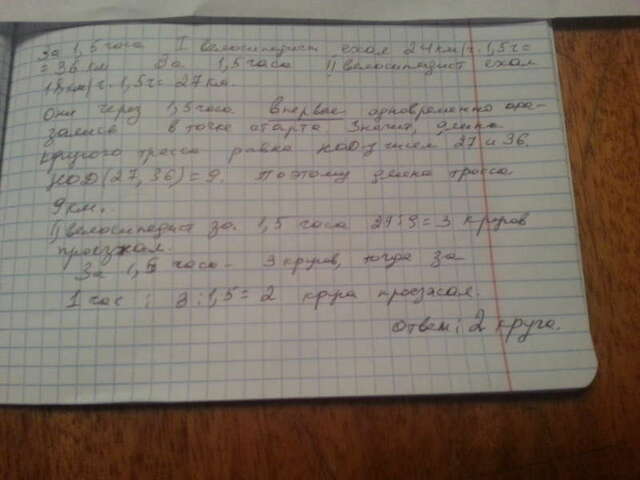 За 1,5 часа I велосипедист ехал 24км/ч·1,5ч=
=36 км За 1,5 часа II велосипедист ехал
18км/ч·1,5ч=27км.
Они через 1,5 часа впервые одновременно ока-
зались в точке старта Значит, длина
круговой трассы равна НОД чисел 27 и 36.
НОД(27,36)=9. Поэтому длина трассы
9км.
II велосипедист за 1,5 часа 27:9=3 кругов
проезжал.
За 1,5 часа - 3 кругов, тогда за
1 час : 3:1,5=2 круга проезжал.
Ответ: 2 круга.